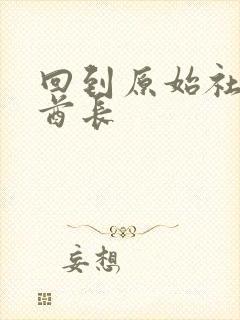 回到原始社
酋长
妄想